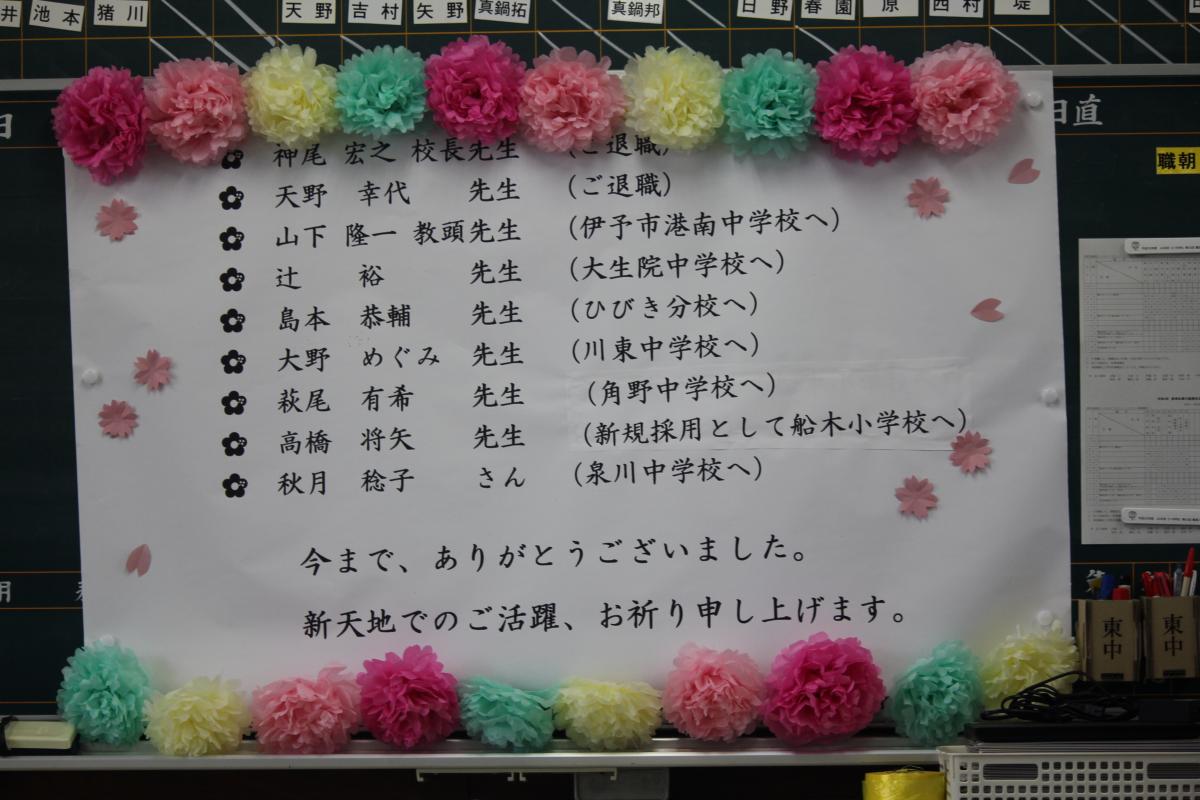 池本 猪川 天野 吉村 矢野 真鍋拓 真鍋邦 日野 春園 原 西村 堤
日直
職朝
神尾 宏之 校長先生 (ご退職)
天野 幸代 先生 (ご退職)
山下 隆一 教頭先生 (伊予市港南中学校へ)
辻 裕 先生 (大生院中学校へ)
島本 恭輔 先生 (ひびき分校へ)
大野 めぐみ 先生 (川東中学校へ)
萩尾 有希 先生 (角野中学校へ)
高橋 将矢 先生 (新規採用として船木小学校へ)
秋月 稔子 さん (泉川中学校へ)
今まで、ありがとうございました。
新天地でのご活躍、お祈り申し上げます。
東中 東中